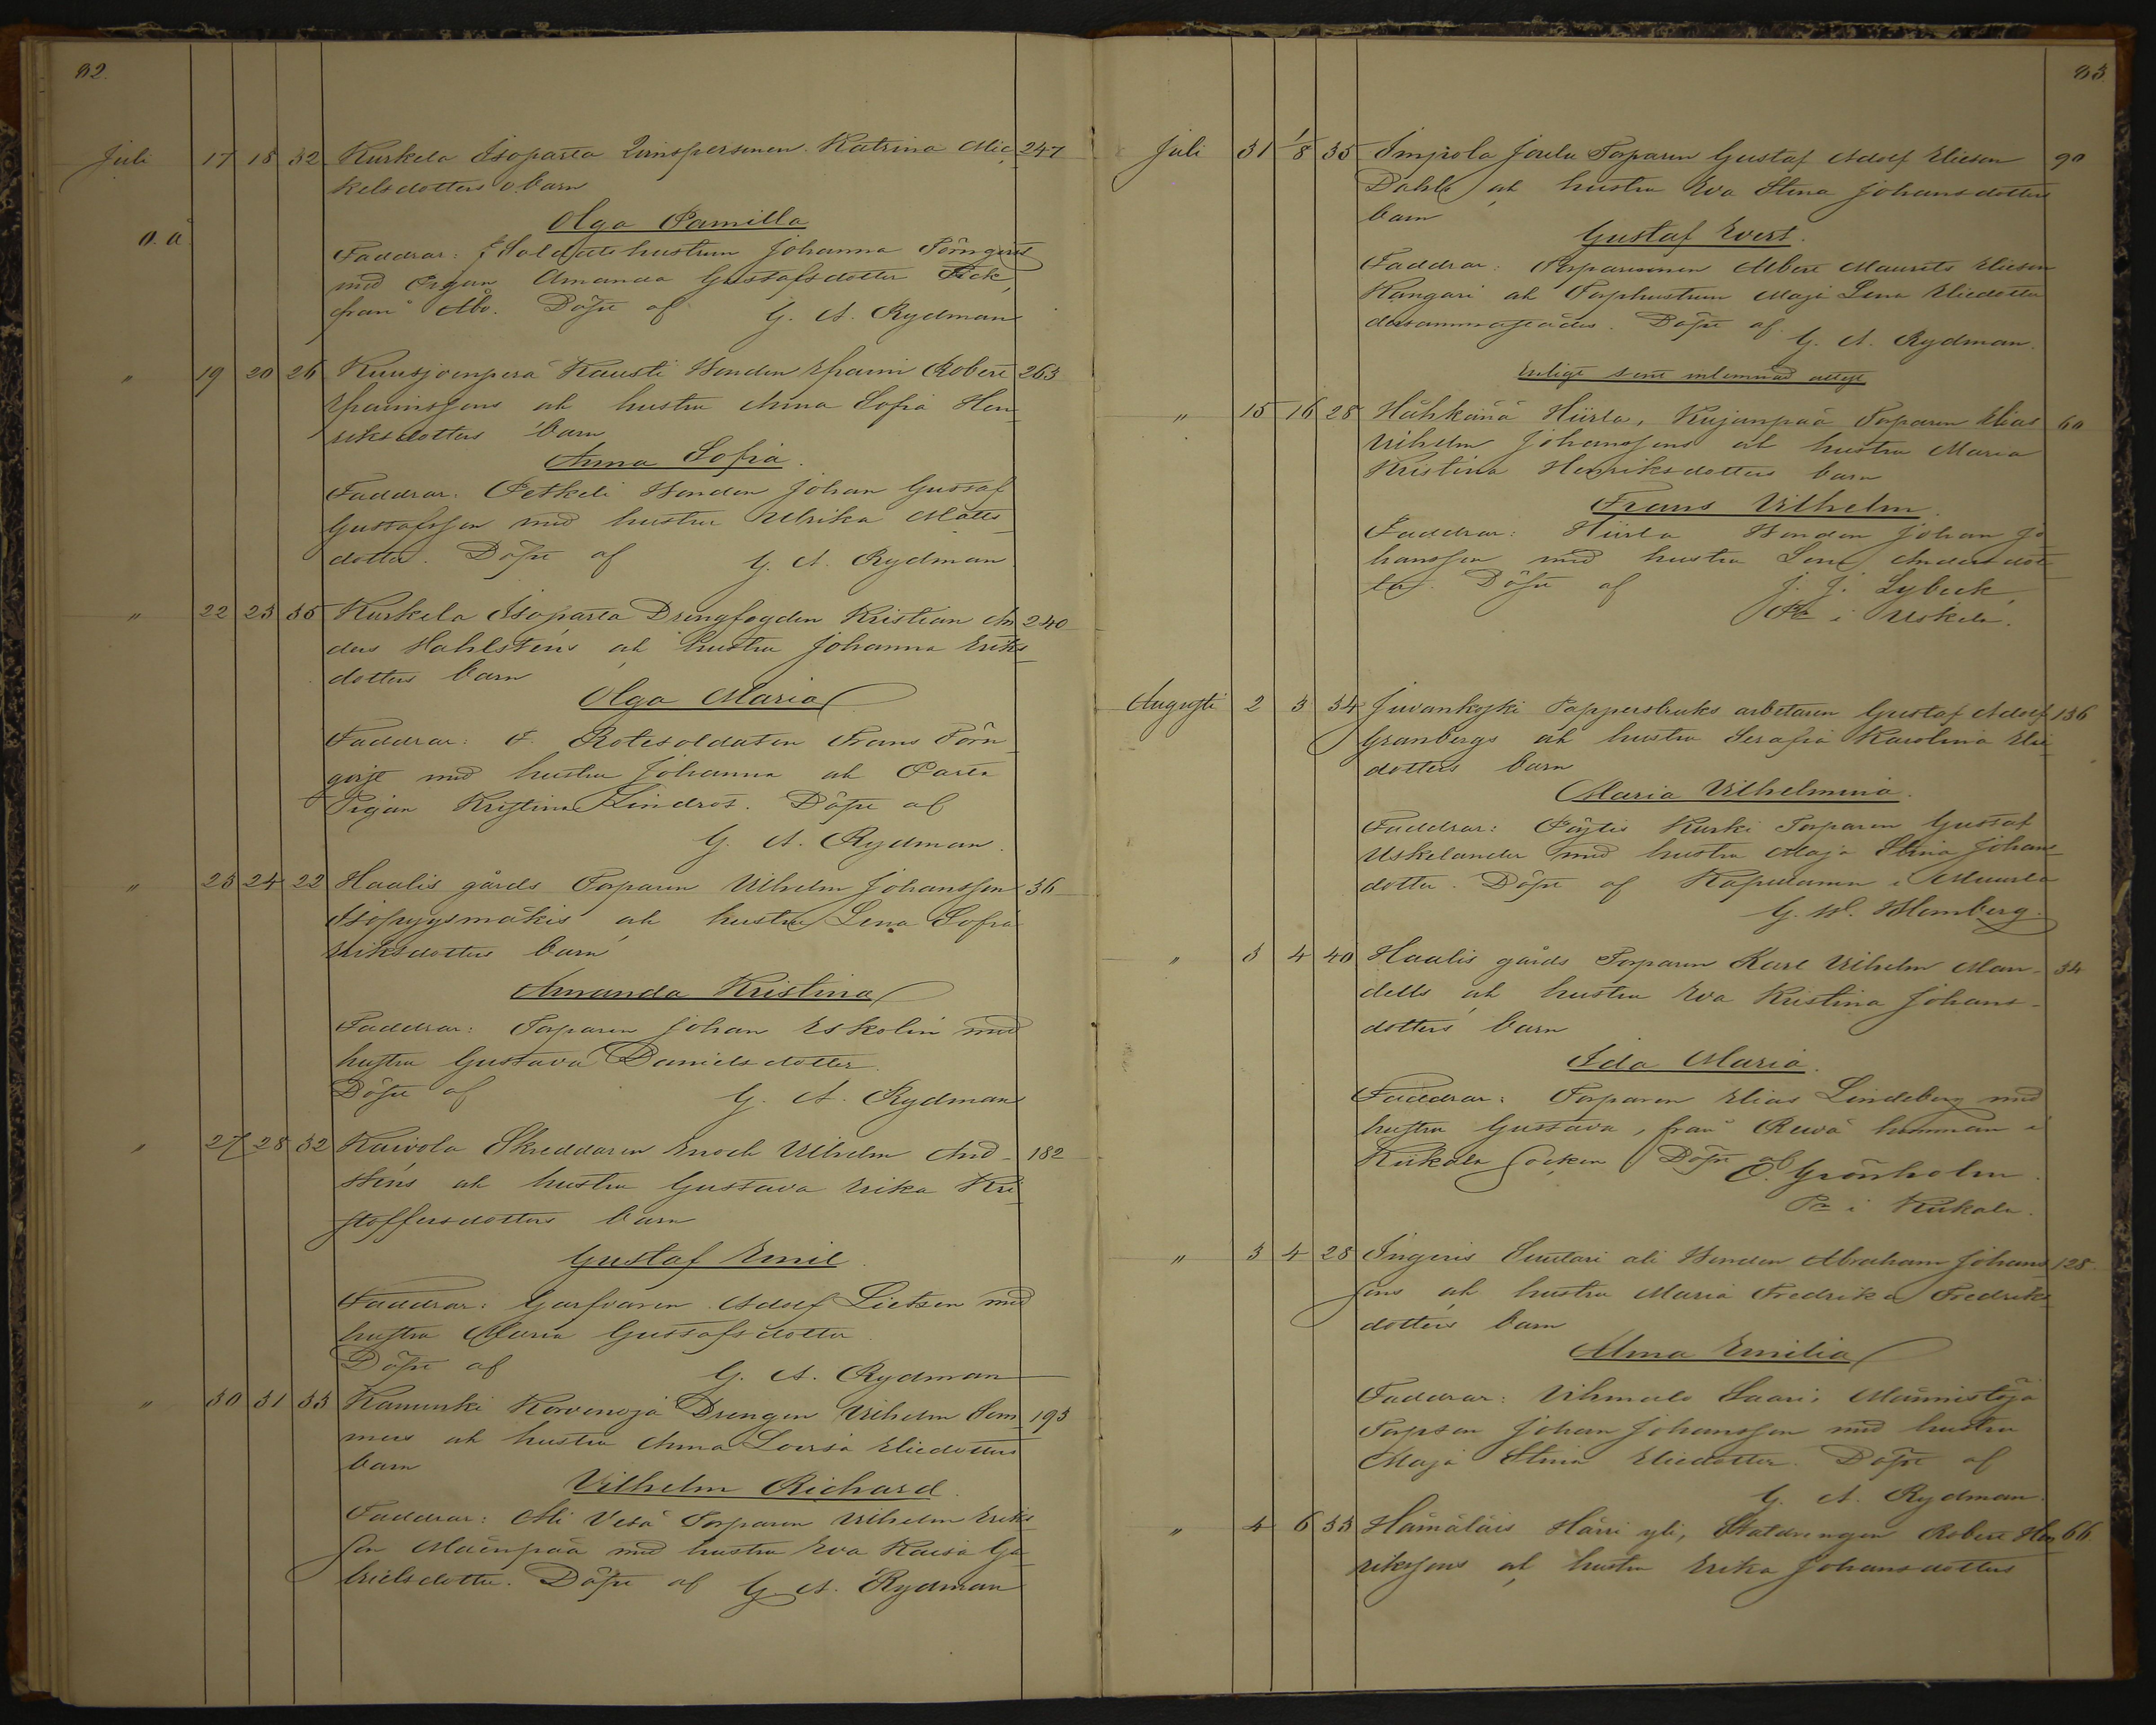 82.
Juli 17 18 32 Kurkela Isoparta Qvinspersonen Katrina Mic 247
kelsdotters o. barn
Olga Pamilla
o. ä.
Faddrar: f. Soldatshustrun Johanna Törnqvist
med Pigan Amanda Gustafsdotter Fick,
från Åbo. Döpt af G. A. Rydman
" 19 20 26 Kuusjoenperä Kausti Bonden Efraim Robert 263
Efraimssons och hustru Anna Sofia Hen
riksdotters barn
Anna Sofia.
Faddrar. Petkeli Bonden Johan Gustaf
Gustafsson med hustru Ulrika Matts
dotter. Döpt af G. A. Rydman
" 22 23 35 Kurkela Isoparta Drengfogden Kristian An 240
ders Hahlsténs och hustru Johanna Eriks
dotters barn
Olga Maria
Faddrar: f. Rotesoldaten Frans Törn
qvist med hustru Johanna och Parta
Pigan Kristina Lindros. Döpt af
G. A. Rydman.
" 23 24 22 Haalis gårds Torparen Vilhelm Johansson 36
Isopyysmäkis och hustru Lena Sofia
Eriksdotters barn
Amanda Kristina
Faddrar: Torparen Johan Eskolin med
hustru Gustava Danielsdotter.
Döpt af G. A. Rydman
" 27 28 32 Raivola Skreddaren Enoch Vilhelm And- 182
sténs och hustru Gustava Erika Kri
stoffersdotters barn
Gustaf Emil
Faddrar: Garfvaren Adolf Lietzen med
hustru Maria Gustafsdotter
Döpt af G. A. Rydman
" 30 31 33 Kanunki Korvenoja Drengen Vilhelm Sim 193
mens och hustru Anna Lovisa Eliedotters
barn
Vilhelm Richard.
Faddrar: Ali Vesä Torparen Vilhelm Eriks
son Mäenpää med hustru Eva Kaisa Ga
brielsdotter. Döpt af G. A. Rydman
83.
Juli 31 1/8 35 Impola Torparen Gustaf Adolf Elieson 90
Dahls och hustru Eva Stina Johansdotters
barn
Gustaf Evert.
Faddrar: Torparesonen Albert Maurits Elieson
Kangari och Torphustrun Maja Lena Eliedotter
dersammastädes. Döpt af G. A. Rydman.
Enligt sent inlemnad attest
" 15 16 28 Hähkänä Hiirla, Kujanpää Torparen Elias 60
Vilhelm Johanssons och hustru Maria
Kristina Henriksdotters barn
Frans Vilhelm.
Faddrar: Hiirla Bonden Johan Jo
hansson med hustru Lena Andersdot
ter. Döpt af J. J. Lybeck,
Pr i Uskela.
Augusti 2 3 34 Juvankoski Pappersbruks arbetaren Gustaf Adolf 136
Granbergs och hustru Serafia Karolina Elie
dotters barn
Maria Vilhelmina.
Faddrar: Pöytis Kurki Torparen Gustaf
Uskelander med hustru Maja Stina Johans
dotter. Döpt af Kapellanen i Muurla
G. W. Blomberg.
" 3 4 40 Haalis gårds Torparen Karl Vilhelm Man- 34
dells och hustru Eva Kristina Johans-
dotters barn
Ida Maria.
Faddrar: Torparen Elias Lindeberg med
hustru Gustava, från Rewä hemman i
Kiikala socken Döpt af O. Grönholm.
Pr i Kiikala.
" 3 4 28 Ingeris Suutari ali Bonden Abraham Johans 128.
sons och hustru Maria Fredrika Fredriks
dotters barn
Alma Emilia
Faddrar: Vihmalo Saari, Männistöjä
Torpson Johan Johansson med hustru
Maja Stina Eliedotter. Döpt af
G. A. Rydman.
" 4 6 33 Hämäläis Härri yli, Statdrengen Robert Hen 66.
rikssons och hustru Erika Johansdotters